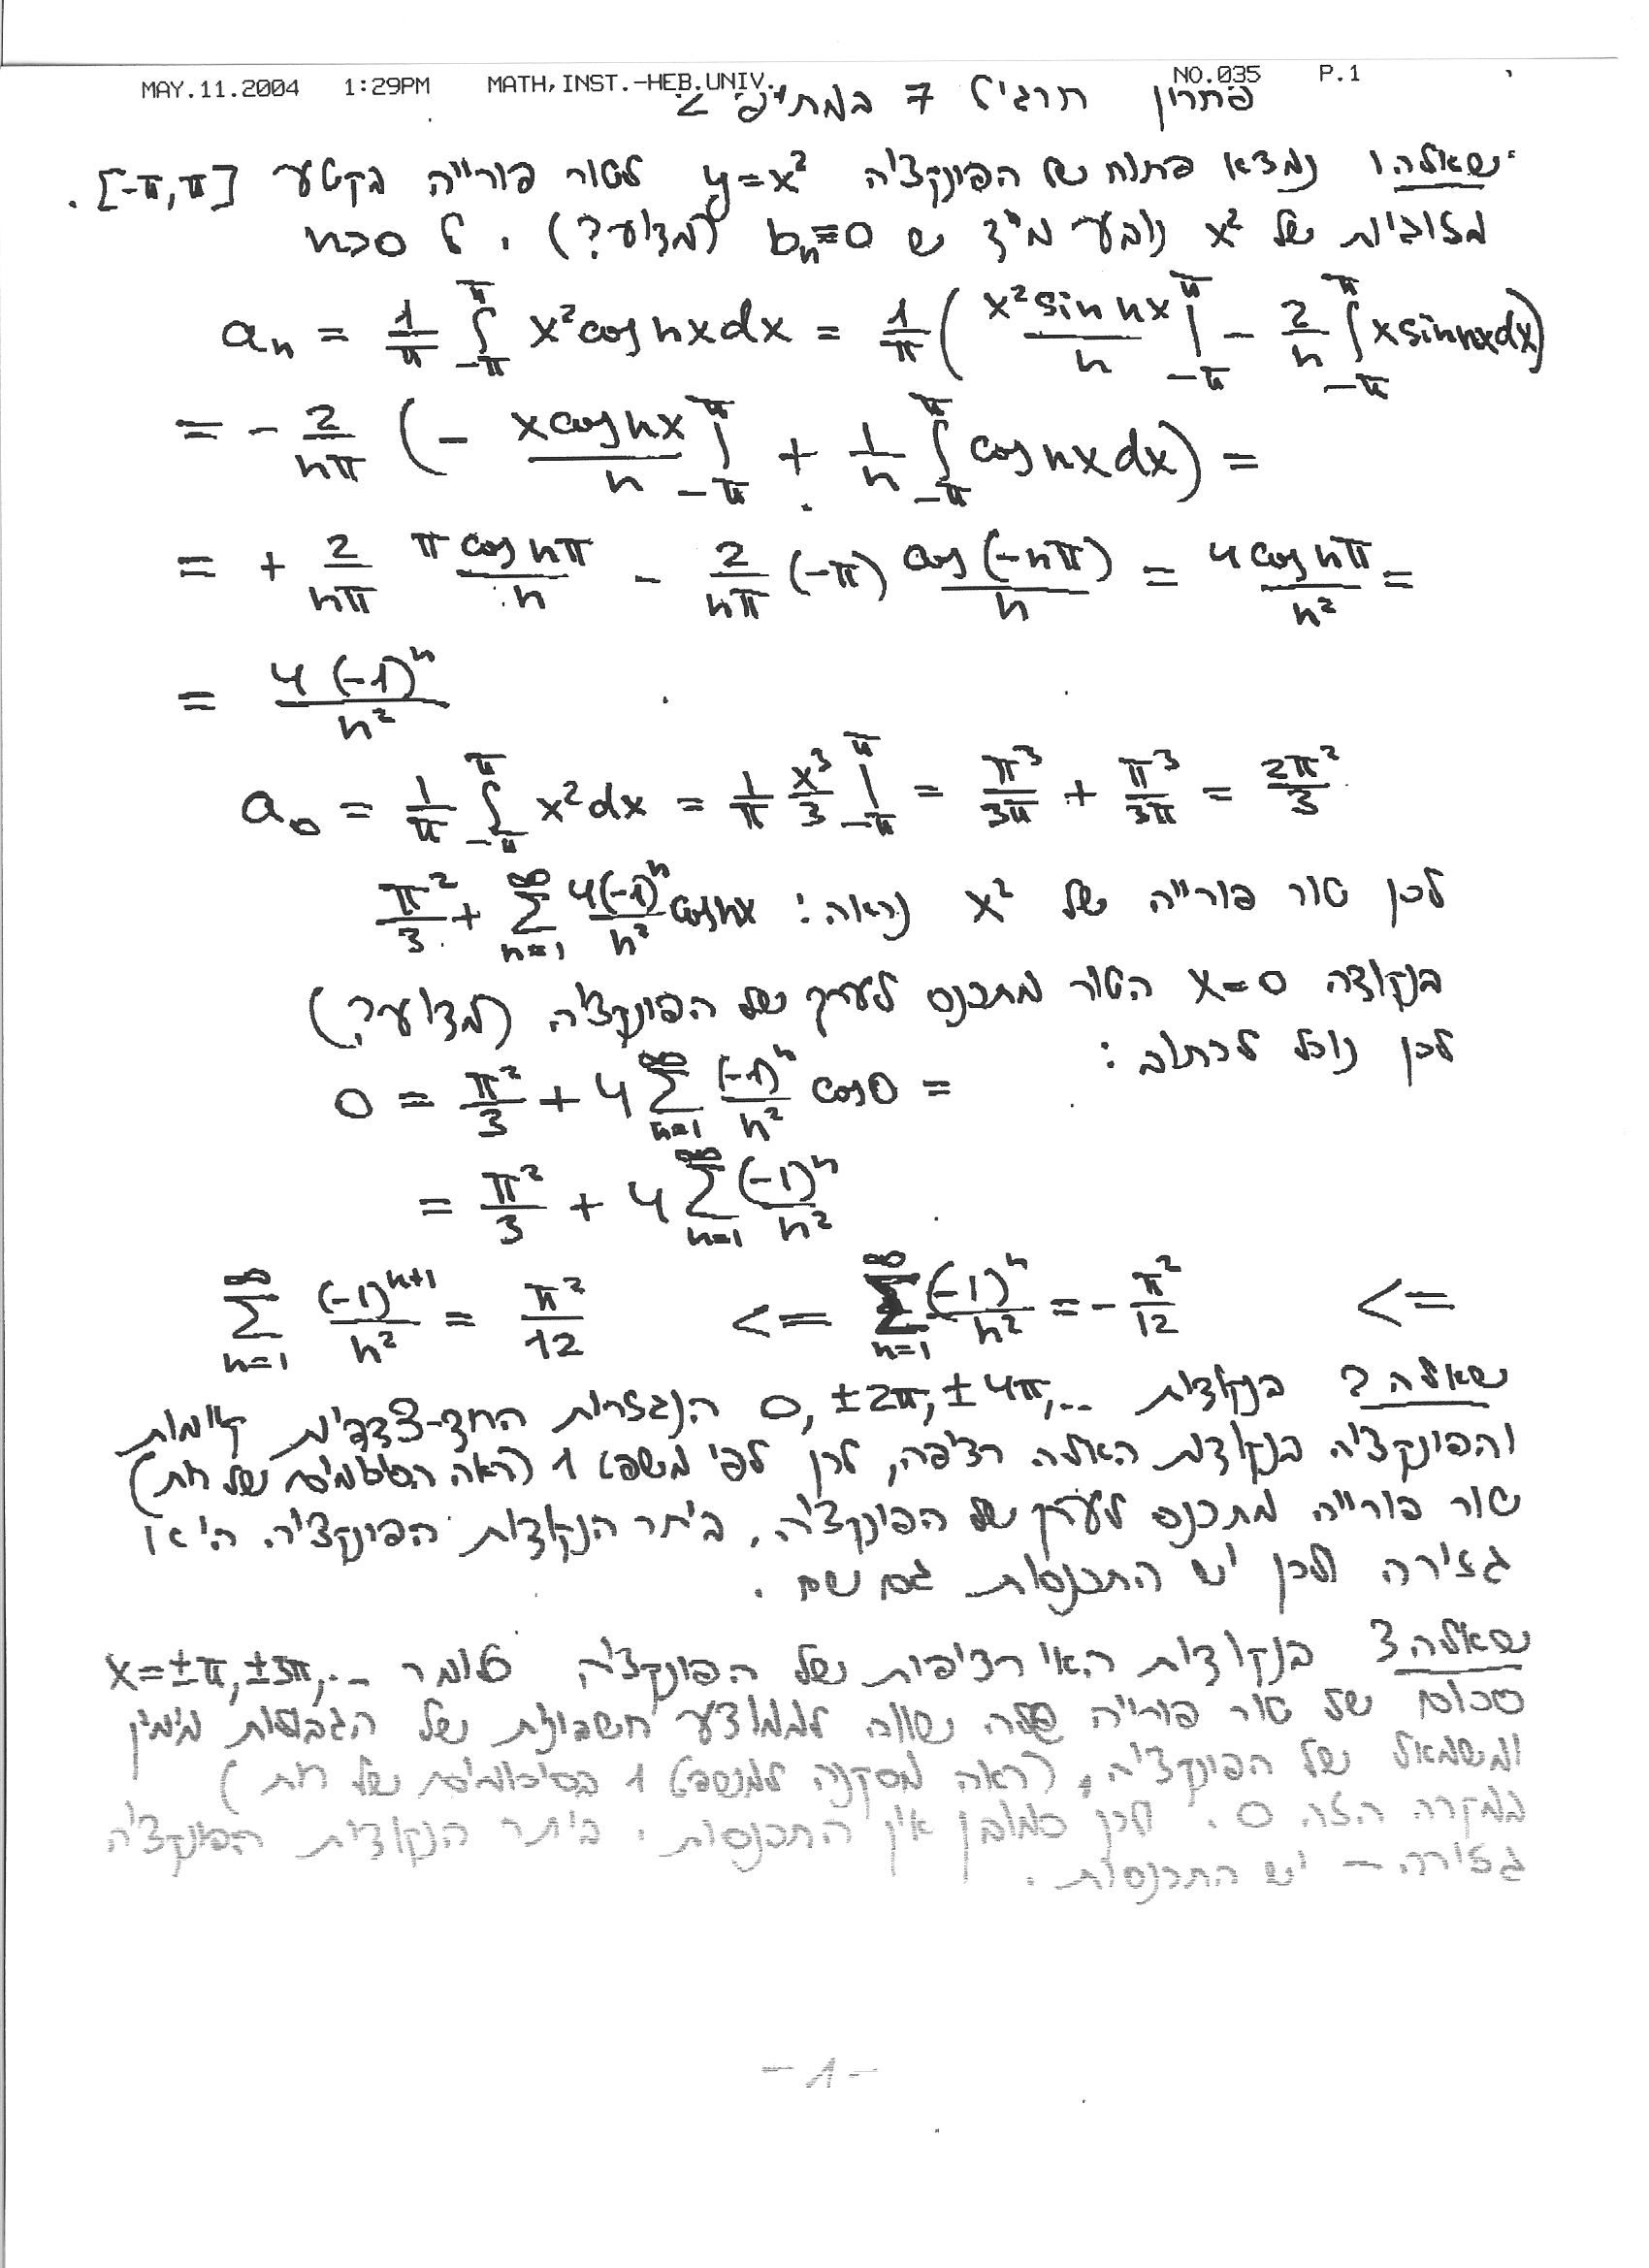 MAY.11.2004 1:29PM MATH,INST.-HEB.UNIV. NO.035 P.1
פתרון תרגיל 7 במת"פ
שאלה 1 נמצא פתוח של הפונקציה y=x² לטור פורייה בקטע [-π,π].
מזוגיות של x² נובע מיד ש bₙ≡0 (מדוע?). ל n>0
aₙ = 1/π ∫_{-π}^{π} x² cos nx dx = 1/π ( x² sin nx / n |_{-π}^{π} - 2/n ∫_{-π}^{π} x sin nx dx )
= - 2/(nπ) ( - x cos nx / n |_{-π}^{π} + 1/n ∫_{-π}^{π} cos nx dx ) =
= + 2/(nπ) π cos nπ / n - 2/(nπ) (-π) cos(-nπ) / n = 4 cos nπ / n² =
= 4(-1)ⁿ / n²
a₀ = 1/π ∫_{-π}^{π} x² dx = 1/π x³/3 |_{-π}^{π} = π³/3π + π³/3π = 2π²/3
לכן טור פורייה של x² נראה: π²/3 + Σ_{n=1}^{∞} 4(-1)ⁿ/n² cos nx
בנקודה x=0 הטור מתכנס לערך של הפונקציה (מדוע?)
לכן נוכל לכתוב:
0 = π²/3 + 4 Σ_{n=1}^{∞} (-1)ⁿ/n² cos 0 =
= π²/3 + 4 Σ_{n=1}^{∞} (-1)ⁿ/n²
<= Σ_{n=1}^{∞} (-1)ⁿ/n² = - π²/12 <= Σ_{n=1}^{∞} (-1)ⁿ⁺¹/n² = π²/12
שאלה 2 בנקודות 0, ±2π, ±4π,... הנגזרות החד-צדדיות קיימות
והפונקציה בנקודות האלה רציפה, לכן לפי משפט 1 (ראה הסיכומים של רות)
טור פורייה מתכנס לערך של הפונקציה. ביתר הנקודות הפונקציה היא
גזירה ולכן יש התכנסות גם שם.
שאלה 3 בנקודות האי רציפות של הפונקציה כלומר x=±π,±3π,...
סכום של טור פורייה שלה שווה לממוצע חשבונית של הגבולות מימין
ומשמאל של הפונקציה, (ראה מסקנה למשפט 1 בסיכומים של רות)
במקרה הזה 0. לכן כמובן אין התכנסות. ביתר הנקודות הפונקציה
גזירה – יש התכנסות.
-1-